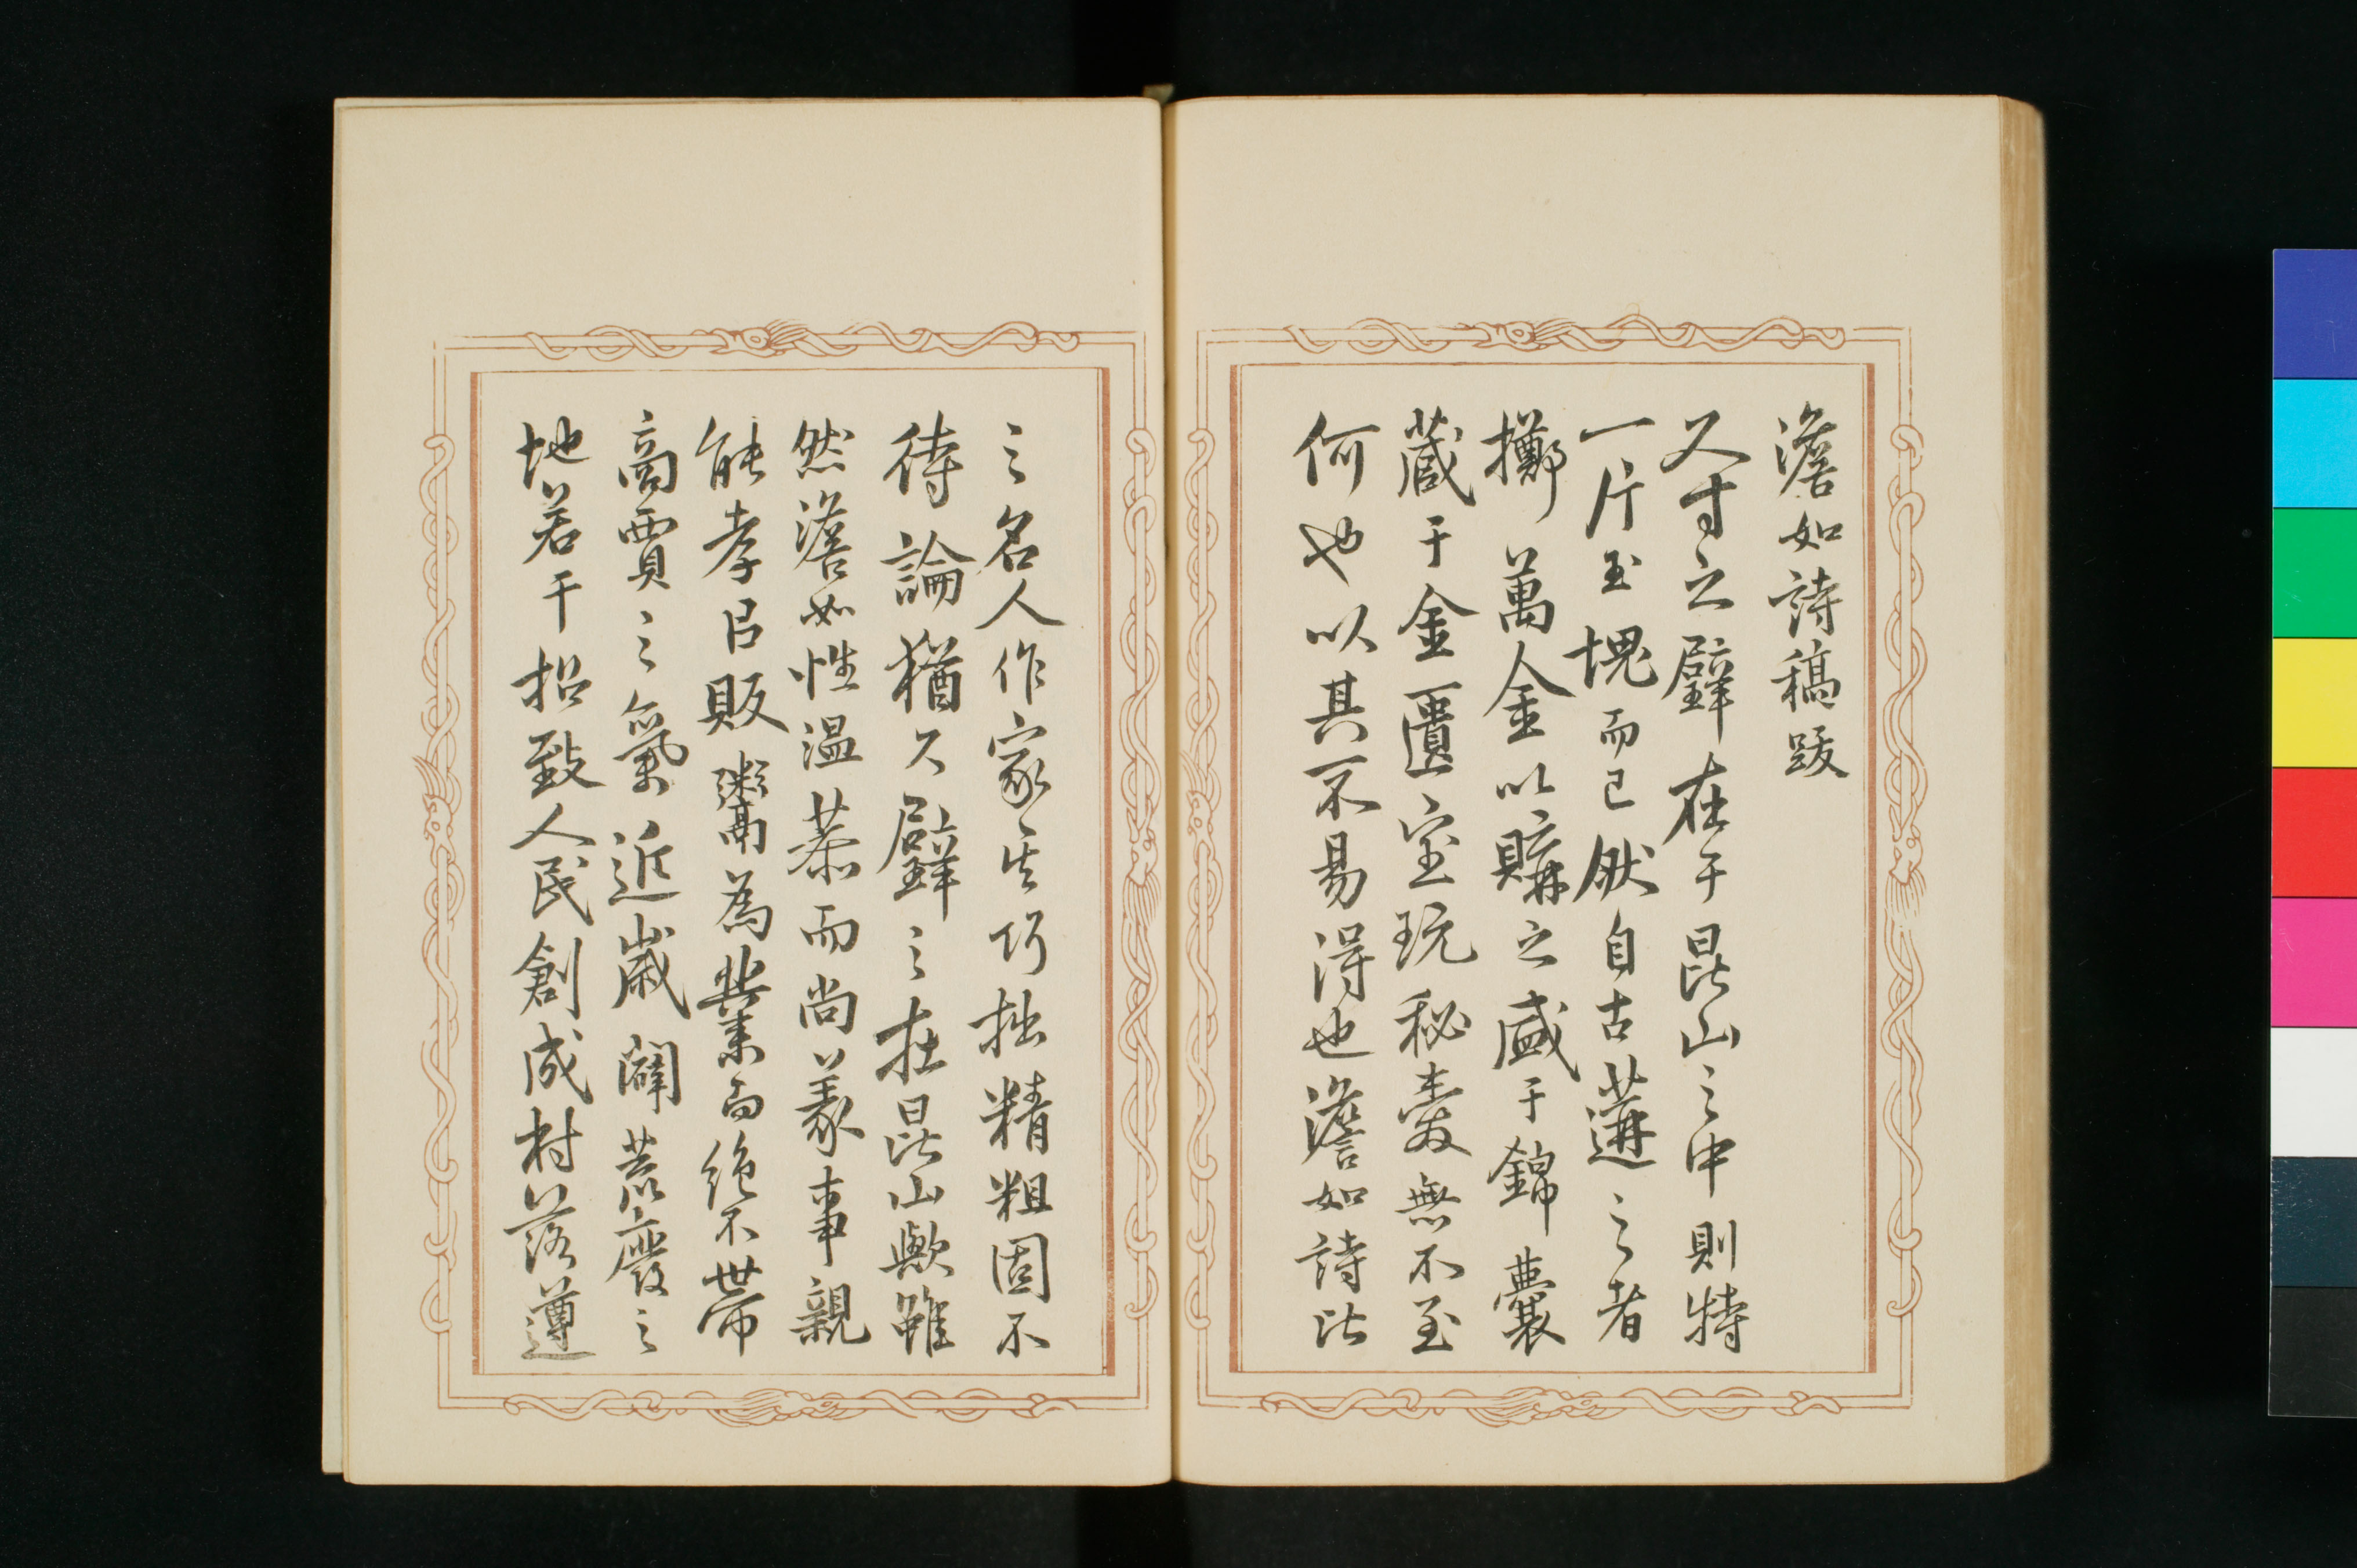 澹如詩稿跋
尺寸之璧在于昆山之中則特
一片玉塊而已然自古遘之者
擲萬金以購之盛于錦囊
蔵于金匱宝玩秘愛無不至
何也以其不易得也澹如詩比
之名人作家其巧拙精粗固不
待論猶尺璧之在昆山歟雖
然澹如性温恭而尚義事親
能孝以販鬻為業而絶不帯
商賈之氣近歲闢荒廢之
地若干招致人民創成村落遵